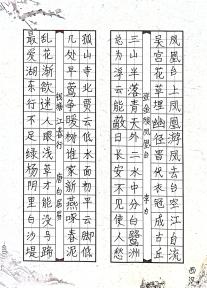 凤凰台上凤凰游凤去台空江自流
吴宫花草埋幽径晋代衣冠成古丘
登金陵凤凰台 李白
三山半落青天外二水中分白鹭洲
总为浮云能蔽日长安不见使人愁
孤山寺北贾亭西水面初平云脚低
几处早莺争暖树谁家新燕啄春泥
钱塘江春行 唐白居易
乱花渐欲迷人眼浅草才能没马蹄
最爱湖东行不足绿杨阴里白沙堤